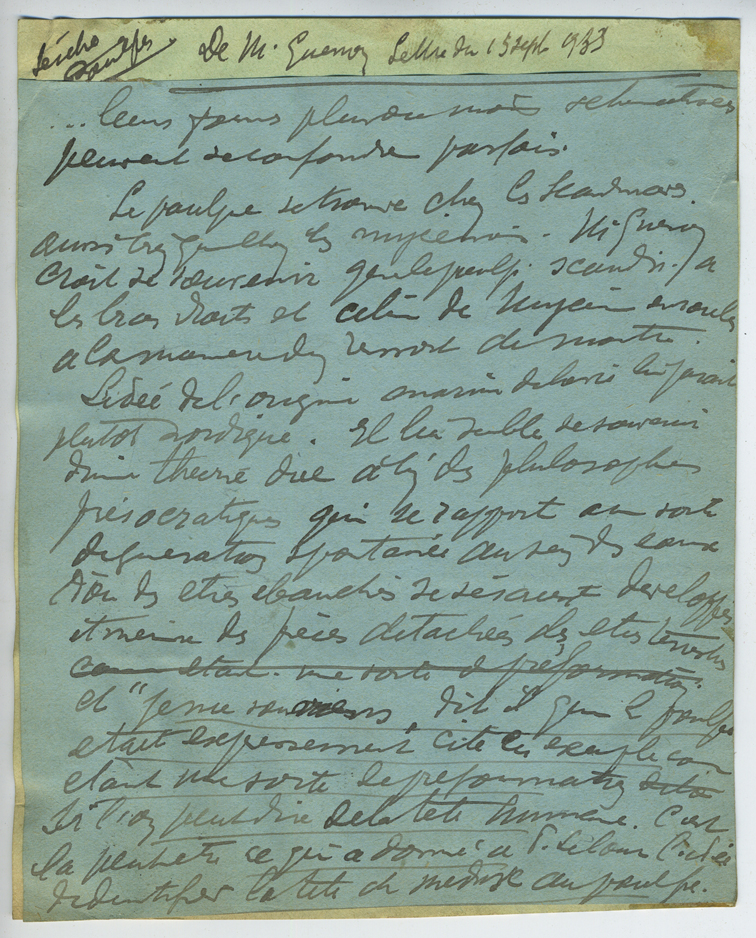 De M. Guenon Lettre du 15 sept 1933
... leurs formes plus ou moins schematisées
peuvent se confondre parfois.
Le poulpe se trouve chez les Scandinaves
aussi bien que chez les myceniens. M Guenon
croit se souvenir que le poulpe scandin. a
les bras droits et celui de Mycenes enroulés
a la maniere des ressort de montre.
L'idée de l'origine marine de la vie lui parait
plutot nordique. Il lui semble se souvenir
d'une theorie due à des philosophes
présocratiques qui se rapport a une sorte
de generation spontanée au sein des eaux
d'ou des etres ebauchés se seraient developpés
et meme des pièces detachées des etres terrestres
comme etant une sorte de preformation
et "je me souviens, dit il que le poulpe
etait expressement cité en exemple comme
etant une sorte de preformation
si l'on peut dire de la tete humaine. C'est
la peut etre ce qui a donné a P. Lecour l'idée
d'identifier la tete de meduse au poulpe.